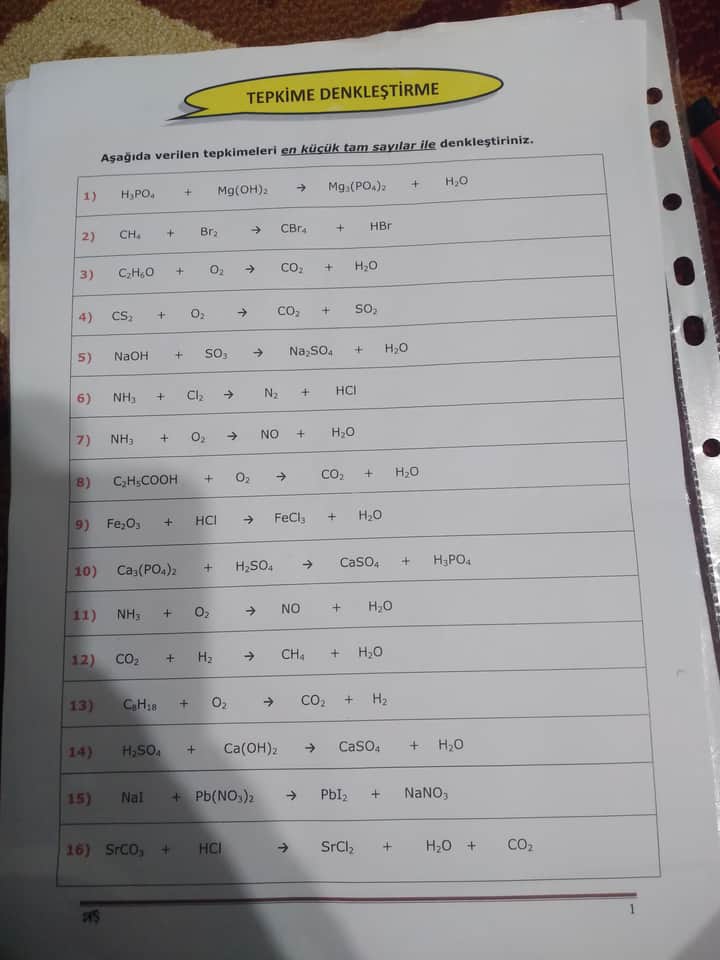 TEPKİME DENKLEŞTİRME
Aşağıda verilen tepkimeleri en küçük tam sayılar ile denkleştiriniz.
1) H₃PO₄ + Mg(OH)₂ → Mg₃(PO₄)₂ + H₂O
2) CH₄ + Br₂ → CBr₄ + HBr
3) C₂H₆O + O₂ → CO₂ + H₂O
4) CS₂ + O₂ → CO₂ + SO₂
5) NaOH + SO₃ → Na₂SO₄ + H₂O
6) NH₃ + Cl₂ → N₂ + HCl
7) NH₃ + O₂ → NO + H₂O
8) C₂H₅COOH + O₂ → CO₂ + H₂O
9) Fe₂O₃ + HCl → FeCl₃ + H₂O
10) Ca₃(PO₄)₂ + H₂SO₄ → CaSO₄ + H₃PO₄
11) NH₃ + O₂ → NO + H₂O
12) CO₂ + H₂ → CH₄ + H₂O
13) C₈H₁₈ + O₂ → CO₂ + H₂
14) H₂SO₄ + Ca(OH)₂ → CaSO₄ + H₂O
15) NaI + Pb(NO₃)₂ → PbI₂ + NaNO₃
16) SrCO₃ + HCl → SrCl₂ + H₂O + CO₂
1